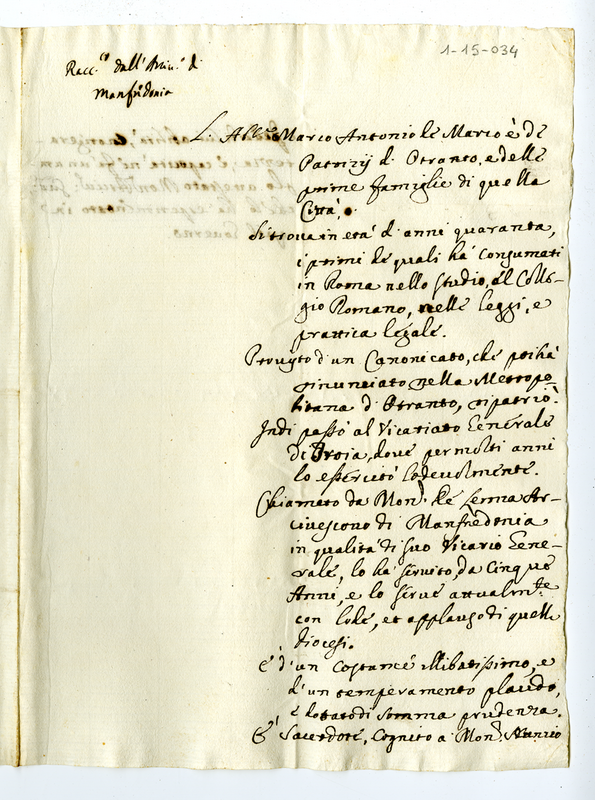 1-15-034
Racc.to dall' Arciv.o di
Manfredonia
L. Abb.e Marco Antonio de Marco è de
Patrizij di Otranto, e delle
prime famiglie di quella
Città.
Si trova in età d' anni quaranta,
i primi de quali hà consumati
in Roma nello studio, al Colle-
gio Romano, nelle leggi, e
prattica legale.
Provisto d' un Canonicato, che poi hà
rinunciato nella Metropo-
litana d' Otranto, ripatriò.
Indi passò al Vicariato Generale
di Troia, dove per molti anni
lo essercitò lodevolmente.
Chiamato da Mon.r de Lerma Ar-
civescovo di Manfredonia
in qualità di suo Vicario Gene-
rale, lo hà servito, da cinque
Anni, e lo serve attualm.te
con lode, et applauso di quella
diocesi.
E' d' un costume illibatissimo, e
d' un temperamento placido,
è dotato di somma prudenza.
E' Sacerdote, Cognito a Mon.r Nunzio